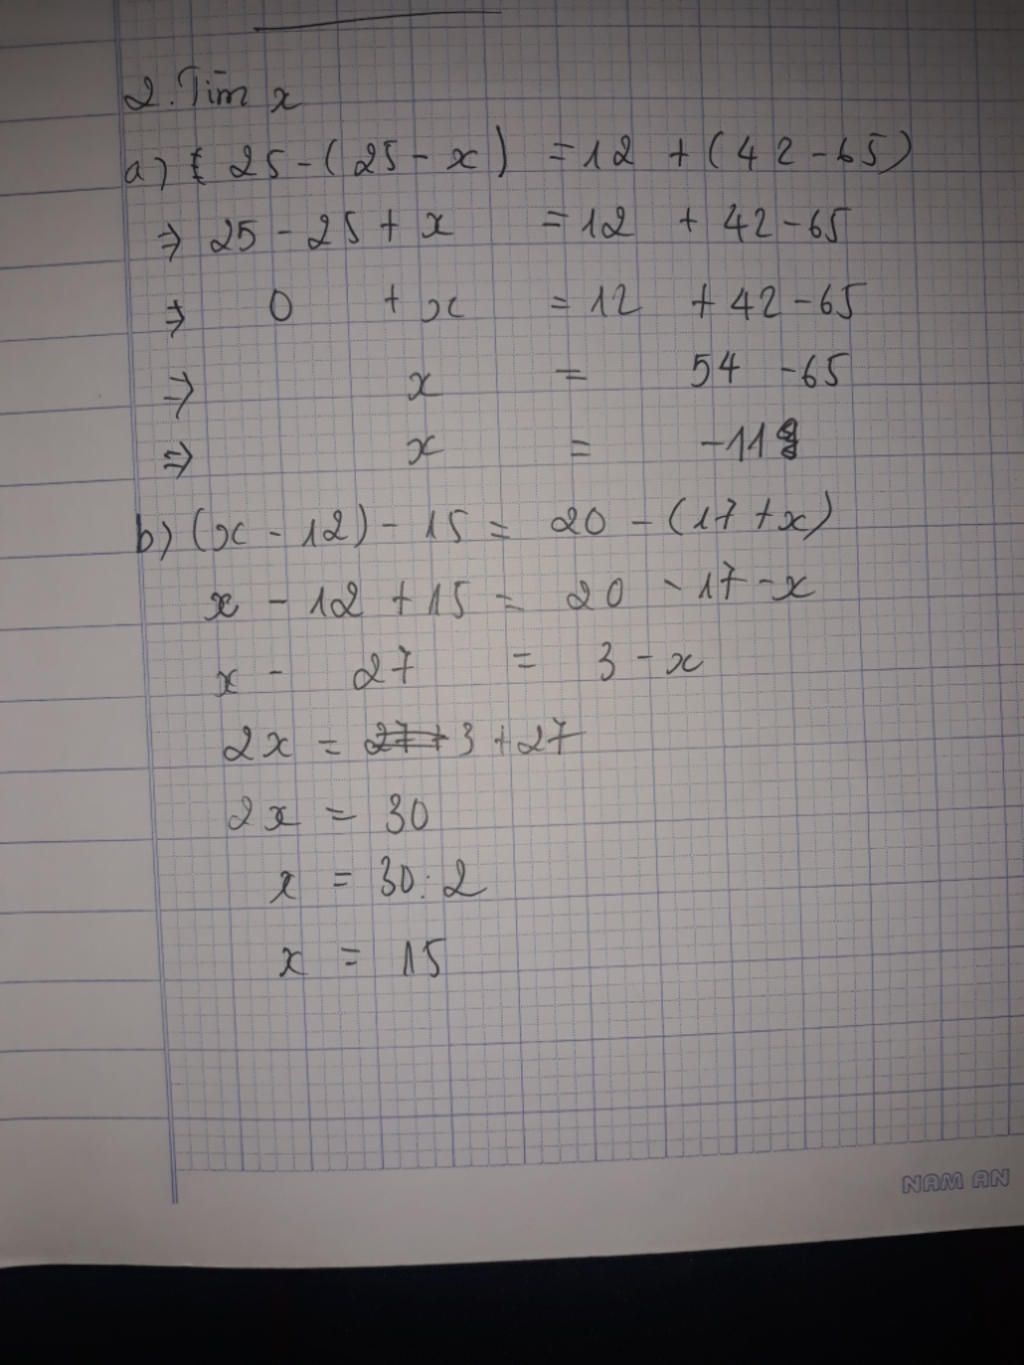 2. Tìm x
a) 25 - (25 - x) = 12 + (42 - 65)
⇒ 25 - 25 + x = 12 + 42 - 65
⇒ 0 + x = 12 + 42 - 65
⇒ x = 54 - 65
⇒ x = -11
b) (x - 12) - 15 = 20 - (17 + x)
x - 12 + 15 = 20 - 17 - x
x - 27 = 3 - x
2x = 3 + 27
2x = 30
x = 30 : 2
x = 15
NAM AN